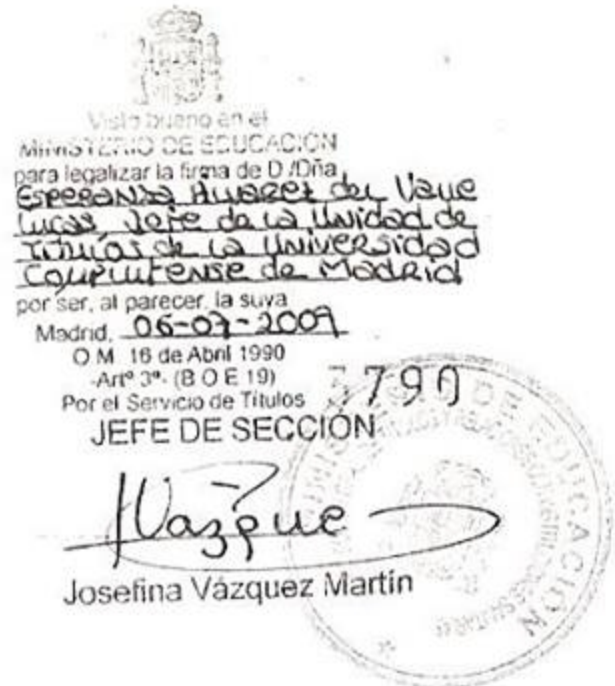 Visto bueno en el
MINISTERIO DE EDUCACION
para legalizar la firma de D./Dña
Esperanza Alvarez del Valle
Lucas, Jefe de la Unidad de
Títulos de la Universidad
Complutense de Madrid
por ser, al parecer, la suya
Madrid, 06-07-2009
O M 16 de Abril 1990
-Artº 3º- (B O E 19)
Por el Servicio de Títulos
3790
JEFE DE SECCIÓN
Vazque
Josefina Vázquez Martín
MINISTERIO DE EDUCACIÓN